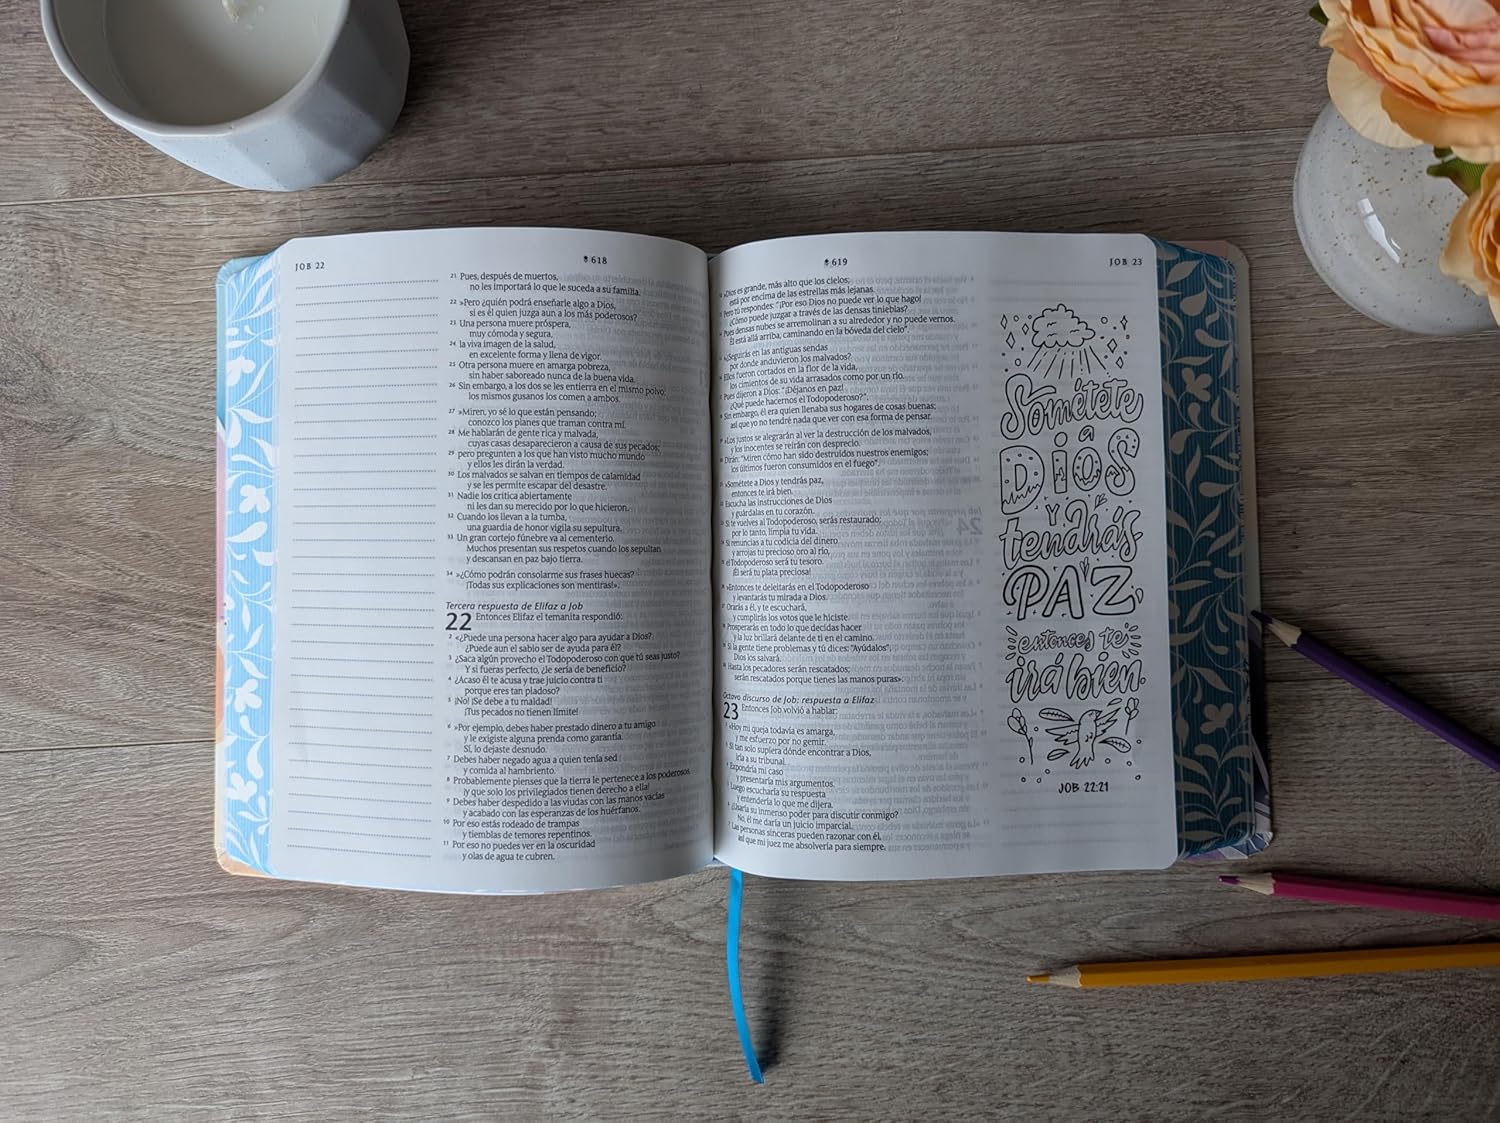 JOB 22
618
21 Pues, después de muertos,
no les importará lo que le suceda a su familia.
22 »Pero ¿quién podrá enseñarle algo a Dios,
si es él quien juzga aun a los más poderosos?
23 Una persona muere próspera,
muy cómoda y segura,
24 la viva imagen de la salud,
en excelente forma y llena de vigor.
25 Otra persona muere en amarga pobreza,
sin haber saboreado nunca de la buena vida.
26 Sin embargo, a los dos se les entierra en el mismo polvo;
los mismos gusanos los comen a ambos.
27 »Miren, yo sé lo que están pensando;
conozco los planes que traman contra mí.
28 Me hablarán de gente rica y malvada,
cuyas casas desaparecieron a causa de sus pecados;
29 pero pregunten a los que han visto mucho mundo
y ellos les dirán la verdad.
30 Los malvados se salvan en tiempos de calamidad
y se les permite escapar del desastre.
31 Nadie los critica abiertamente
ni les dan su merecido por lo que hicieron.
32 Cuando los llevan a la tumba,
una guardia de honor vigila su sepultura.
33 Un gran cortejo fúnebre va al cementerio.
Muchos presentan sus respetos cuando los sepultan
y descansan en paz bajo tierra.
34 »¿Cómo podrán consolarme sus frases huecas?
¡Todas sus explicaciones son mentiras!».
Tercera respuesta de Elifaz a Job
22 Entonces Elifaz el temanita respondió:
2 «¿Puede una persona hacer algo para ayudar a Dios?
¿Puede aun el sabio ser de ayuda para él?
3 ¿Saca algún provecho el Todopoderoso con que tú seas justo?
Y si fueras perfecto, ¿le sería de beneficio?
4 ¿Acaso él te acusa y trae juicio contra ti
porque eres tan piadoso?
5 ¡No! ¡Se debe a tu maldad!
¡Tus pecados no tienen límite!
6 »Por ejemplo, debes haber prestado dinero a tu amigo
y le exigiste alguna prenda como garantía.
Sí, lo dejaste desnudo.
7 Debes haber negado agua a quien tenía sed
y comida al hambriento.
8 Probablemente pienses que la tierra le pertenece a los poderosos,
¡y que solo los privilegiados tienen derecho a ella!
9 Debes haber despedido a las viudas con las manos vacías
y acabado con las esperanzas de los huérfanos.
10 Por eso estás rodeado de trampas
y tiemblas de temores repentinos.
11 Por eso no puedes ver en la oscuridad
y olas de agua te cubren.
619
JOB 23
»Dios es grande, más alto que los cielos;
está por encima de las estrellas más lejanas.
Pero tú respondes: "¡Por eso Dios no puede ver lo que hago!
¿Cómo puede juzgar a través de las densas tinieblas?
Pues densas nubes se arremolinan a su alrededor y no puede vernos.
Él está allá arriba, caminando en la bóveda del cielo".
»¿Seguirás en las antiguas sendas
por donde anduvieron los malvados?
Ellos fueron cortados en la flor de la vida,
los cimientos de su vida arrasados como por un río.
Pues dijeron a Dios: "¡Déjanos en paz!
¿Qué puede hacernos el Todopoderoso?".
Sin embargo, él era quien llenaba sus hogares de cosas buenas;
así que yo no tendré nada que ver con esa forma de pensar.
»Los justos se alegrarán al ver la destrucción de los malvados,
y los inocentes se reirán con desprecio.
Dirán: "Miren cómo han sido destruidos nuestros enemigos;
los últimos fueron consumidos en el fuego".
»Sométete a Dios y tendrás paz,
entonces te irá bien.
Escucha las instrucciones de Dios
y guárdalas en tu corazón.
Si te vuelves al Todopoderoso, serás restaurado;
por lo tanto, limpia tu vida.
Si renuncias a tu codicia del dinero
y arrojas tu precioso oro al río,
el Todopoderoso será tu tesoro.
¡Él será tu plata preciosa!
»Entonces te deleitarás en el Todopoderoso
y levantarás tu mirada a Dios.
Orarás a él, y te escuchará,
y cumplirás los votos que le hiciste.
Prosperarás en todo lo que decidas hacer
y la luz brillará delante de ti en el camino.
Si la gente tiene problemas y tú dices: "Ayúdalos",
Dios los salvará.
Hasta los pecadores serán rescatados;
serán rescatados porque tienes las manos puras».
Octavo discurso de Job: respuesta a Elifaz
23 Entonces Job volvió a hablar:
«Hoy mi queja todavía es amarga,
y me esfuerzo por no gemir.
Si tan solo supiera dónde encontrar a Dios,
iría a su tribunal.
Expondría mi caso
y presentaría mis argumentos.
Luego escucharía su respuesta
y entendería lo que me dijera.
¿Usaría su inmenso poder para discutir conmigo?
No, él me daría un juicio imparcial.
Las personas sinceras pueden razonar con él,
así que mi juez me absolvería para siempre.
Sométete
a
DIOS
Y
tendrás
PAZ,
entonces te
irá bien.
JOB 22:21